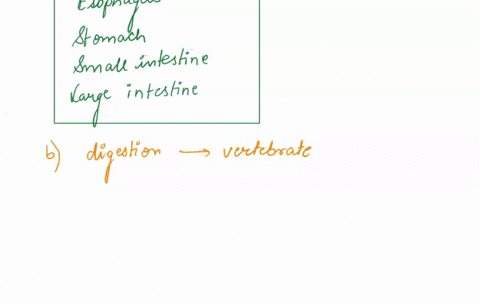 Esophagus
Stomach
Small intestine
Large intestine
b) digestion → vertebrate